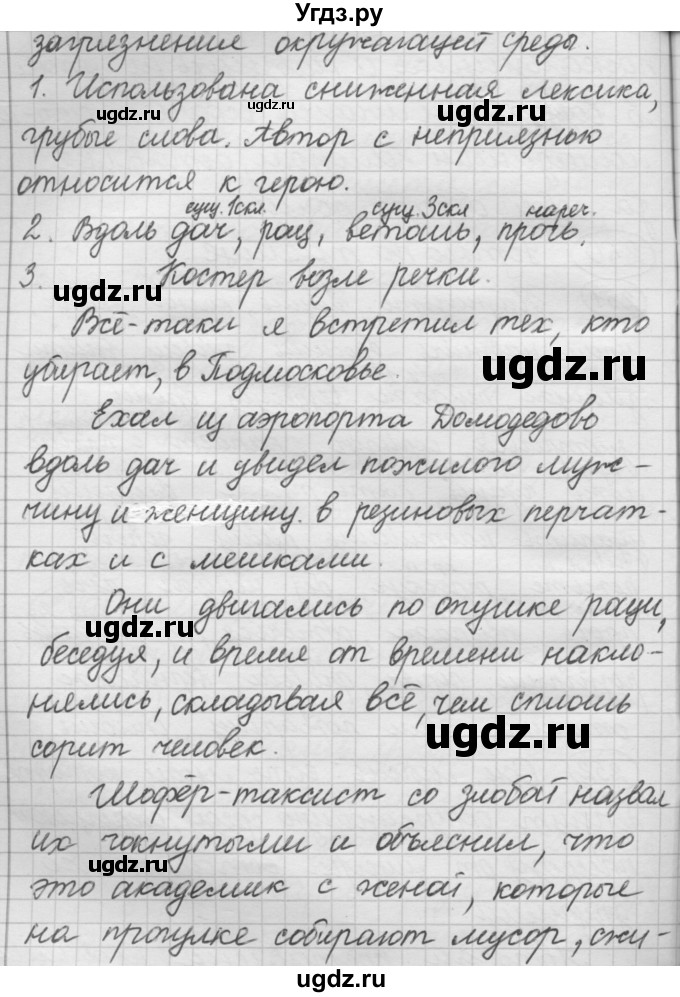 Угдз.ру
загрязнения окружающей среды.
1. Использована сниженная лексика,
ugdz.ru ugdz.ru ugdz.ru
грубые слова. Автор с неприязнью
относится к герою.
сущ. 1 скл. сущ. 3 скл нареч.
2. Вдоль дач, рощ, ветошь, прочь.
3. Костер возле речки.
ugdz.ru
Всё-таки я встретил тех, кто
убирает, в Подмосковье.
ugdz.ru
Ехал из аэропорта Домодедово
вдоль дач и увидел пожилого муж-
чину и женщину в резиновых перчат-
ках и с мешками.
Они двигались по опушке рощи,
ugdz.ru
беседуя, и время от времени накло-
нялись, складывая всё, чем сплошь
сорит человек.
ugdz.ru
Шофёр-таксист со злобой назвал
их чокнутыми и объяснил, что
ugdz.ru
это академик с женой, которые
на прогулке собирают мусор, сжи-
ugdz.ru